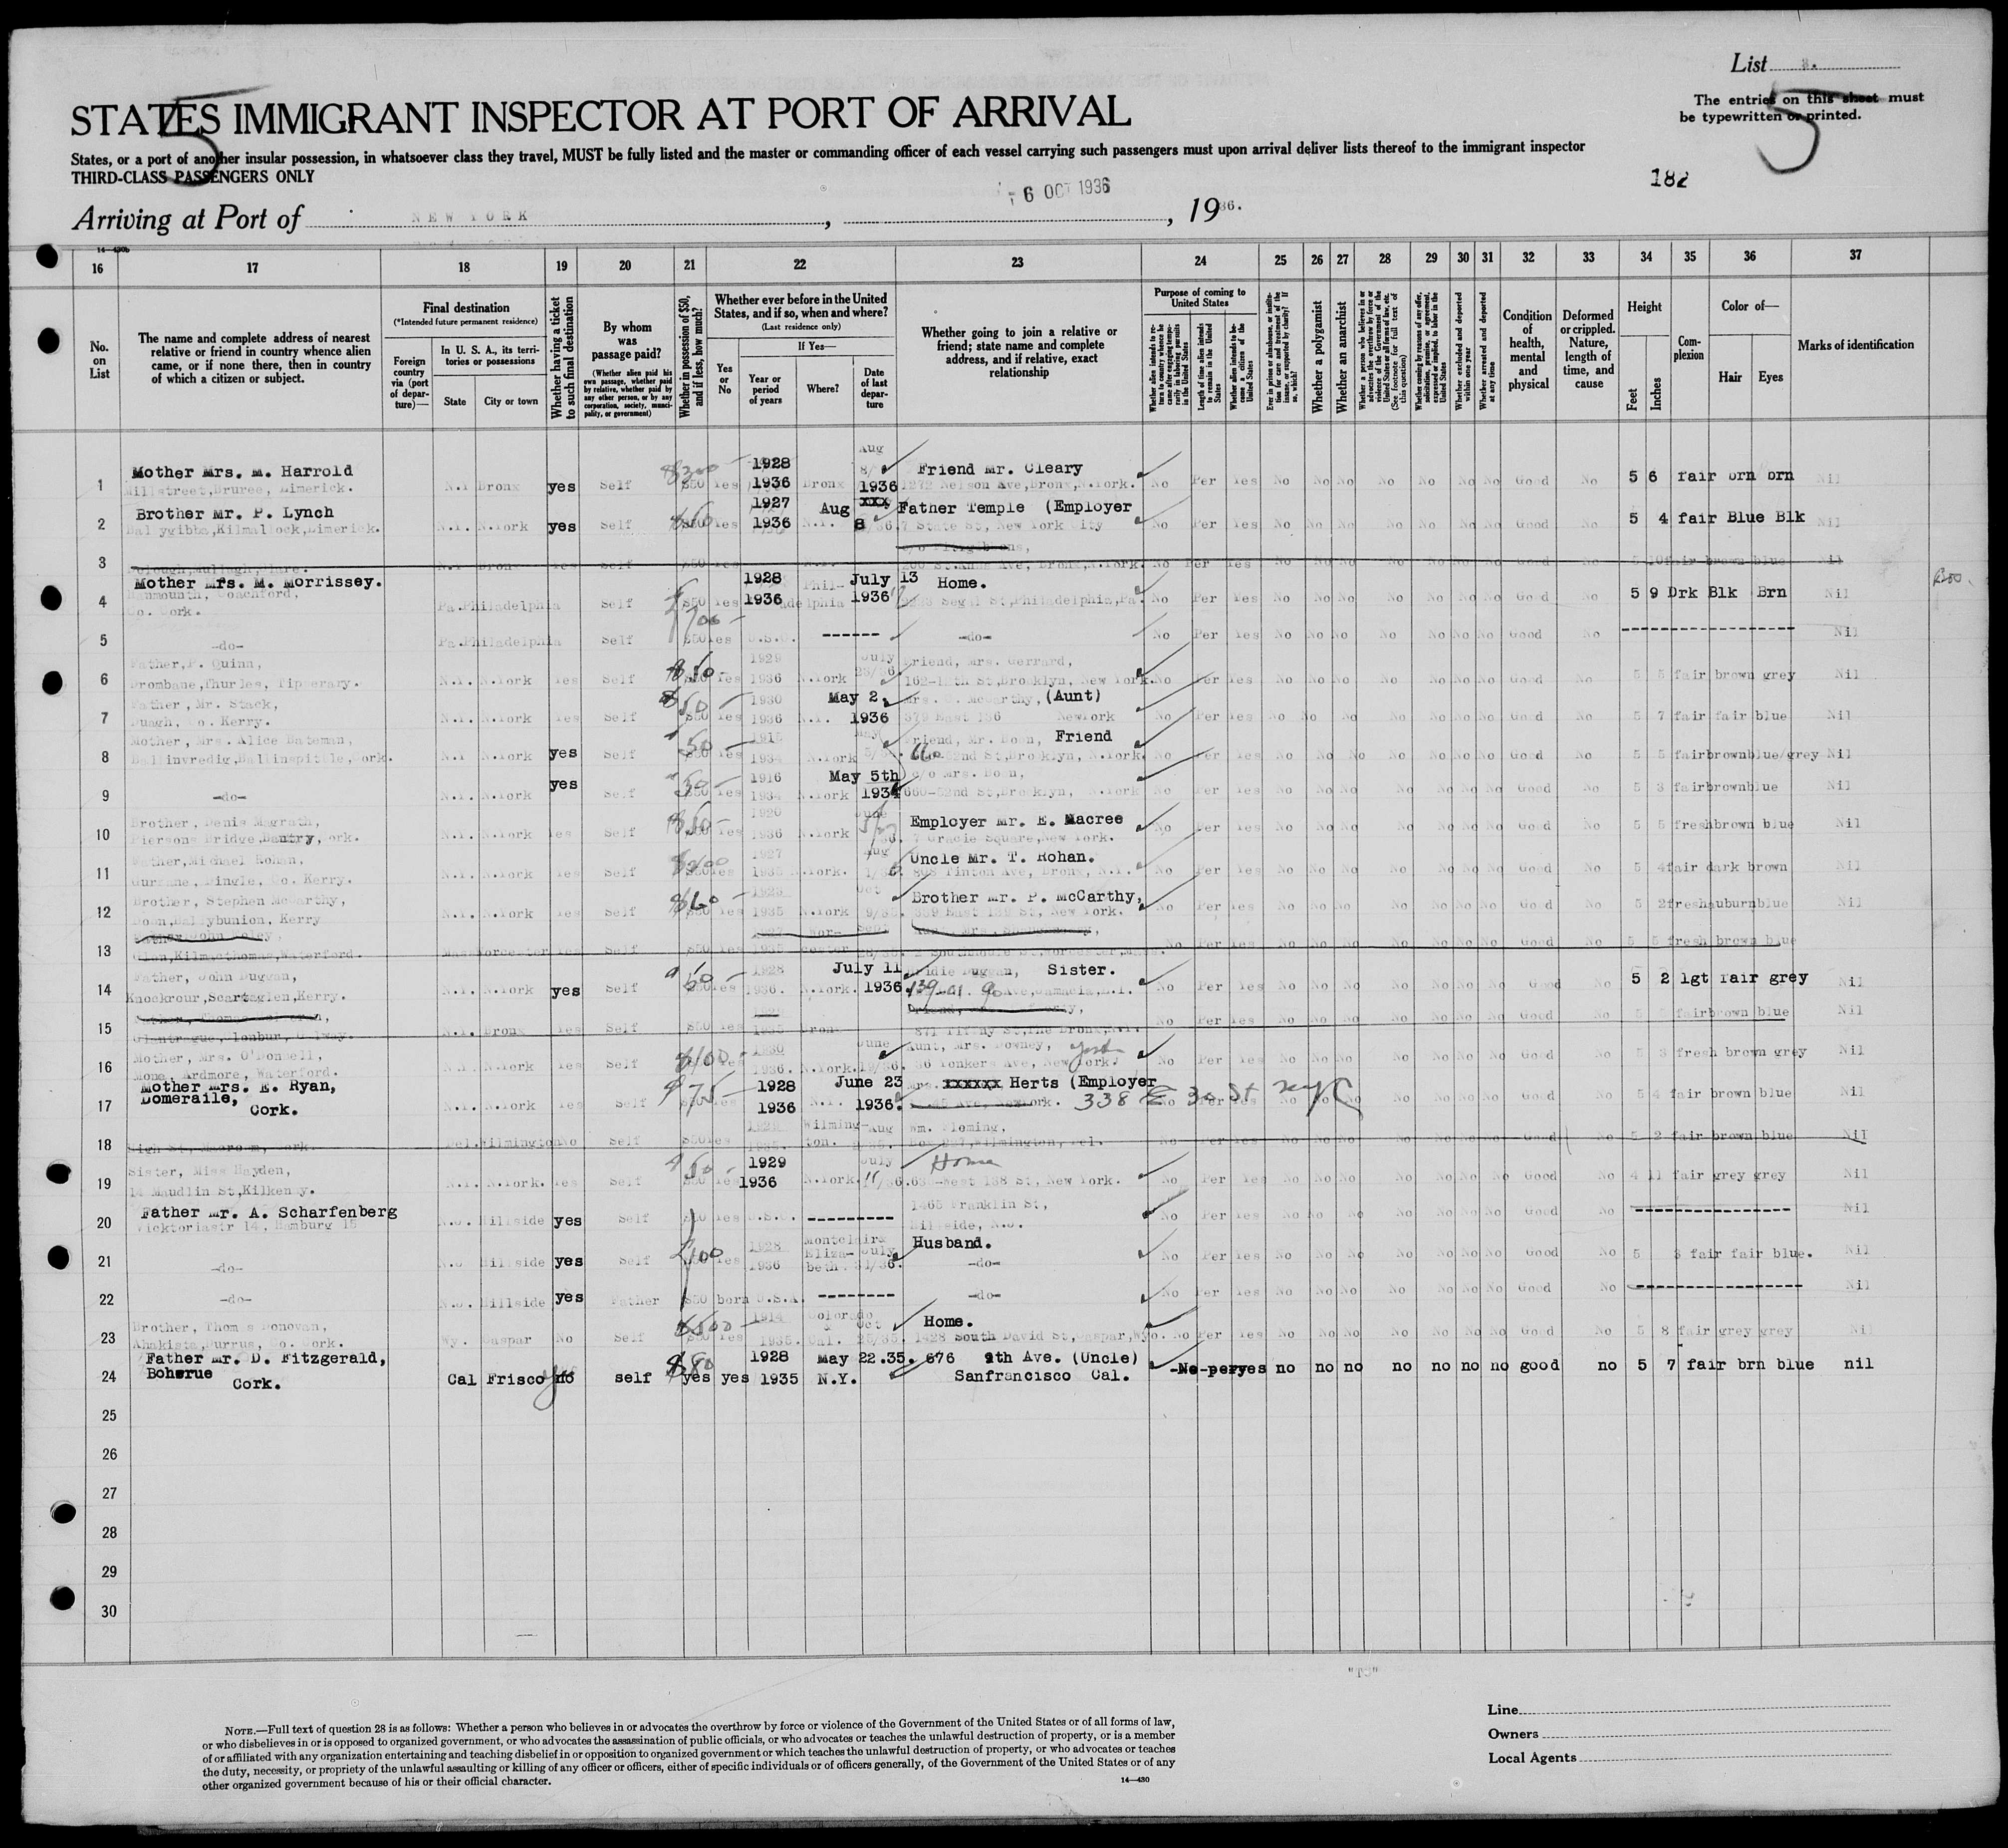 List 8.
The entries on this sheet must
be typewritten or printed.
STATES IMMIGRANT INSPECTOR AT PORT OF ARRIVAL
5
5
States, or a port of another insular possession, in whatsoever class they travel, MUST be fully listed and the master or commanding officer of each vessel carrying such passengers must upon arrival deliver lists thereof to the immigrant inspector
THIRD-CLASS PASSENGERS ONLY
182
Arriving at Port of NEW YORK, 6 OCT 1936, 1936.
14—430b
16 17 18 19 20 21 22 23 24 25 26 27 28 29 30 31 32 33 34 35 36 37
No. on List
The name and complete address of nearest relative or friend in country whence alien came, or if none there, then in country of which a citizen or subject.
Final destination
(*Intended future permanent residence)
Foreign country via (port of departure)—
In U. S. A., its territories or possessions
State
City or town
Whether having a ticket to such final destination
By whom was passage paid?
(Whether alien paid his own passage, whether paid by relative, whether paid by any other person, or by any corporation, society, municipality, or government)
Whether in possession of $50, and if less, how much?
Whether ever before in the United States, and if so, when and where?
(Last residence only)
Yes or No
If Yes—
Year or period of years
Where?
Date of last departure
Whether going to join a relative or friend; state name and complete address, and if relative, exact relationship
Purpose of coming to United States
Whether alien intends to return to country whence he came after engaging temporarily in laboring pursuits in the United States
Length of time alien intends to remain in the United States
Whether alien intends to become a citizen of the United States
Ever in prison or almshouse, or institution for care and treatment of the insane, or supported by charity? If so, which?
Whether a polygamist
Whether an anarchist
Whether a person who believes in or advocates the overthrow by force or violence of the Government of the United States or all forms of law, etc. (See footnote for full text of this question)
Whether coming by reason of any offer, solicitation, promise, or agreement, expressed or implied, to labor in the United States
Whether excluded and deported within one year
Whether arrested and deported at any time
Condition of health, mental and physical
Deformed or crippled. Nature, length of time, and cause
Height
Feet
Inches
Complexion
Color of—
Hair
Eyes
Marks of identification
1 Mother Mrs. M. Harrold
Millstreet, Bruree, Limerick. N.Y Bronx yes Self $50 Yes 1928 1936 Bronx Aug 8/ 1936 Friend Mr. Cleary
1272 Nelson Ave, Bronx, N.York. No Per Yes No No No No No No No Good No 5 6 fair brn brn Nil
2 Brother Mr. P. Lynch
Kilmallock, Limerick. N.Y. N.York yes Self $50 Yes 1927 1936 N.Y. Aug 8 Father Temple (Employer
7 State St, New York City No Per Yes No No No No No No No Good No 5 4 fair Blue Blk Nil
3 N.Y. Bronx Yes Self $50 Yes Bronx, N.York. No Per Yes No No No No No No No Good No 5 10 fair brown blue Nil
4 Mother Mrs. M. Morrissey.
Coachford,
Co. Cork. Pa. Philadelphia Self $50 Yes 1928 1936 Philadelphia July 13 1936 Home.
Segal St, Philadelphia, Pa. No Per Yes No No No No No No No Good No 5 9 Drk Blk Brn Nil
5 -do- Pa. Philadelphia Self $50 Yes U.S.C. ------ -do- No Per Yes No No No No No No No Good No Nil
6 Father, P. Quinn,
Drombane, Thurles, Tipperary. N.Y. N.York Yes Self $50 Yes 1929 1936 N.York July 25/36 Friend, Mrs. Gerrard,
Brooklyn, New York. No Per Yes No No No No No No No Good No 5 5 fair brown grey Nil
7 Father, Mr. Stack,
Duagh, Co. Kerry. N.Y. N.York Yes Self $50 Yes 1930 1936 N.Y. May 2, 1936 Mrs. C. McCarthy, (Aunt)
579 East 136 NewYork No Per Yes No No No No No No No Good No 5 7 fair fair blue Nil
8 Mother, Mrs. Alice Bateman,
Ballinvredig, Ballinspittle, Cork. N.Y N.York yes Self $50 Yes 1915 1934 N.York May 5/ Friend, Mr. Doan, Friend
660-52nd St, Brooklyn, N.York. No Per Yes No No No No No No No Good No 5 5 fair brown blue/grey Nil
9 -do- N.Y. N.York yes Self $50 Yes 1916 1934 N.York May 5th 1934 c/o Mrs. Doan,
660-52nd St, Brooklyn, N.York No Per Yes No No No No No No No Good No 5 3 fair brown blue Nil
10 Brother, Denis Magrath,
Piersons Bridge, Bantry, Cork. N.Y. N.York Yes Self $50 Yes 1920 1936 N.York June Employer Mr. E. Macree
7 Gracie Square, New York. No Per Yes No No No No No No No Good No 5 5 fresh brown blue Nil
11 Father, Michael Rohan,
Dingle, Co. Kerry. N.Y. N.York Yes Self $200 Yes 1927 1935 N.York. Aug Uncle Mr. T. Rohan.
808 Tinton Ave, Bronx, N.Y. No Per Yes No No No No No No No Good No 5 4 fair dark brown Nil
12 Brother, Stephen McCarthy,
Doon, Ballybunion, Kerry N.Y. N.York Yes Self $60 Yes 1923 1935 N.York Oct 9/35. Brother Mr. P. McCarthy,
New York. No Per Yes No No No No No No No Good No 5 2 fresh auburn blue Nil
13 Father, John Foley,
Glen, Kilmacthomas, Waterford. Mass Worcester Yes Self $50 Yes 1935 Worcester Sept Worcester, Mass. No Per Yes No No No No No No No Good No 5 5 fresh brown blue
14 Father, John Duggan,
Knockrour, Scartaglen, Kerry. N.Y. N.York yes Self $50 Yes 1928 1936. N.York. July 11 1936 Bridie Duggan, Sister.
139-01 90 Ave, Jamaica, L.I. No Per Yes No No No No No No No Good No 5 2 lgt fair grey Nil
15 Clonbur, Galway. N.Y. Bronx Yes Self $50 Yes 1935 Bronx 871 Tiffny St, The Bronx, N.Y. No Per Yes No No No No No No No Good No 5 fair brown blue Nil
16 Mother, Mrs. O'Donnell,
Ardmore, Waterford. N.Y. N.York Yes Self $100 Yes 1930 1936. N.York. June 19/36. Aunt, Mrs. Downey,
36 Yonkers Ave, New York. No Per Yes No No No No No No No Good No 5 3 fresh brown grey Nil
17 Mother Mrs. E. Ryan,
Domeraile,
Cork. N.Y. N.York Yes Self $75 Yes 1928 1936 N.Y. June 23 1936. Mrs. xxxxxx Herts (Employer
338 E 30 St NYC No Per Yes No No No No No No No Good No 5 4 fair brown blue Nil
18 High St, Macroom, Cork. Del. Wilmington No Self $50 Yes 1935. Wilmington. Aug Wm. Fleming,
Wilmington, Del. No Per Yes No No No No No No No Good No 5 2 fair brown blue Nil
19 Sister, Miss Hayden,
14 Maudlin St, Kilkenny. N.Y. N.York. Yes Self $50 Yes 1929 1936 N.York. July 11/36. Home
West 138 St, New York. No Per Yes No No No No No No No Good No 4 11 fair grey grey Nil
20 Father Mr. A. Scharfenberg
Vicktoriastr 14, Hamburg 15 N.J. Hillside yes Self $50 Yes U.S.C. --------- 1465 Franklin St,
Hillside, N.J. No Per Yes No No No No No No No Good No Nil
21 -do- N.J Hillside yes Self $100 Yes 1928 1936 Montclair Elizabeth. July 31/36. Husband.
-do- No Per Yes No No No No No No No Good No 5 3 fair fair blue. Nil
22 -do- N.J. Hillside yes Father $50 born U.S.A. -------- -do- No Per Yes No No No No No No No Good No Nil
23 Brother, Thomas Donovan,
Ahakista, Durrus, Co. Cork. Wy. Caspar No Self $500 Yes 1914 1935. Colorado & Cal. Oct 25/35. Home.
1428 South David St, Caspar, Wyo. No Per Yes No No No No No No No Good No 5 8 fair grey grey Nil
24 Father Mr. D. Fitzgerald,
Boherue
Cork. Cal Frisco no self $80 yes yes 1928 1935 N.Y. May 22.35. 676 9th Ave. (Uncle)
Sanfrancisco Cal. No per yes no no no no no no no good no 5 7 fair brn blue nil
25
26
27
28
29
30
NOTE.—Full text of question 28 is as follows: Whether a person who believes in or advocates the overthrow by force or violence of the Government of the United States or of all forms of law,
or who disbelieves in or is opposed to organized government, or who advocates the assassination of public officials, or who advocates or teaches the unlawful destruction of property, or is a member
of or affiliated with any organization entertaining and teaching disbelief in or opposition to organized government or which teaches the unlawful destruction of property, or who advocates or teaches
the duty, necessity, or propriety of the unlawful assaulting or killing of any officer or officers, either of specific individuals or of officers generally, of the Government of the United States or of any
other organized government because of his or their official character.
14—430
Line
Owners
Local Agents